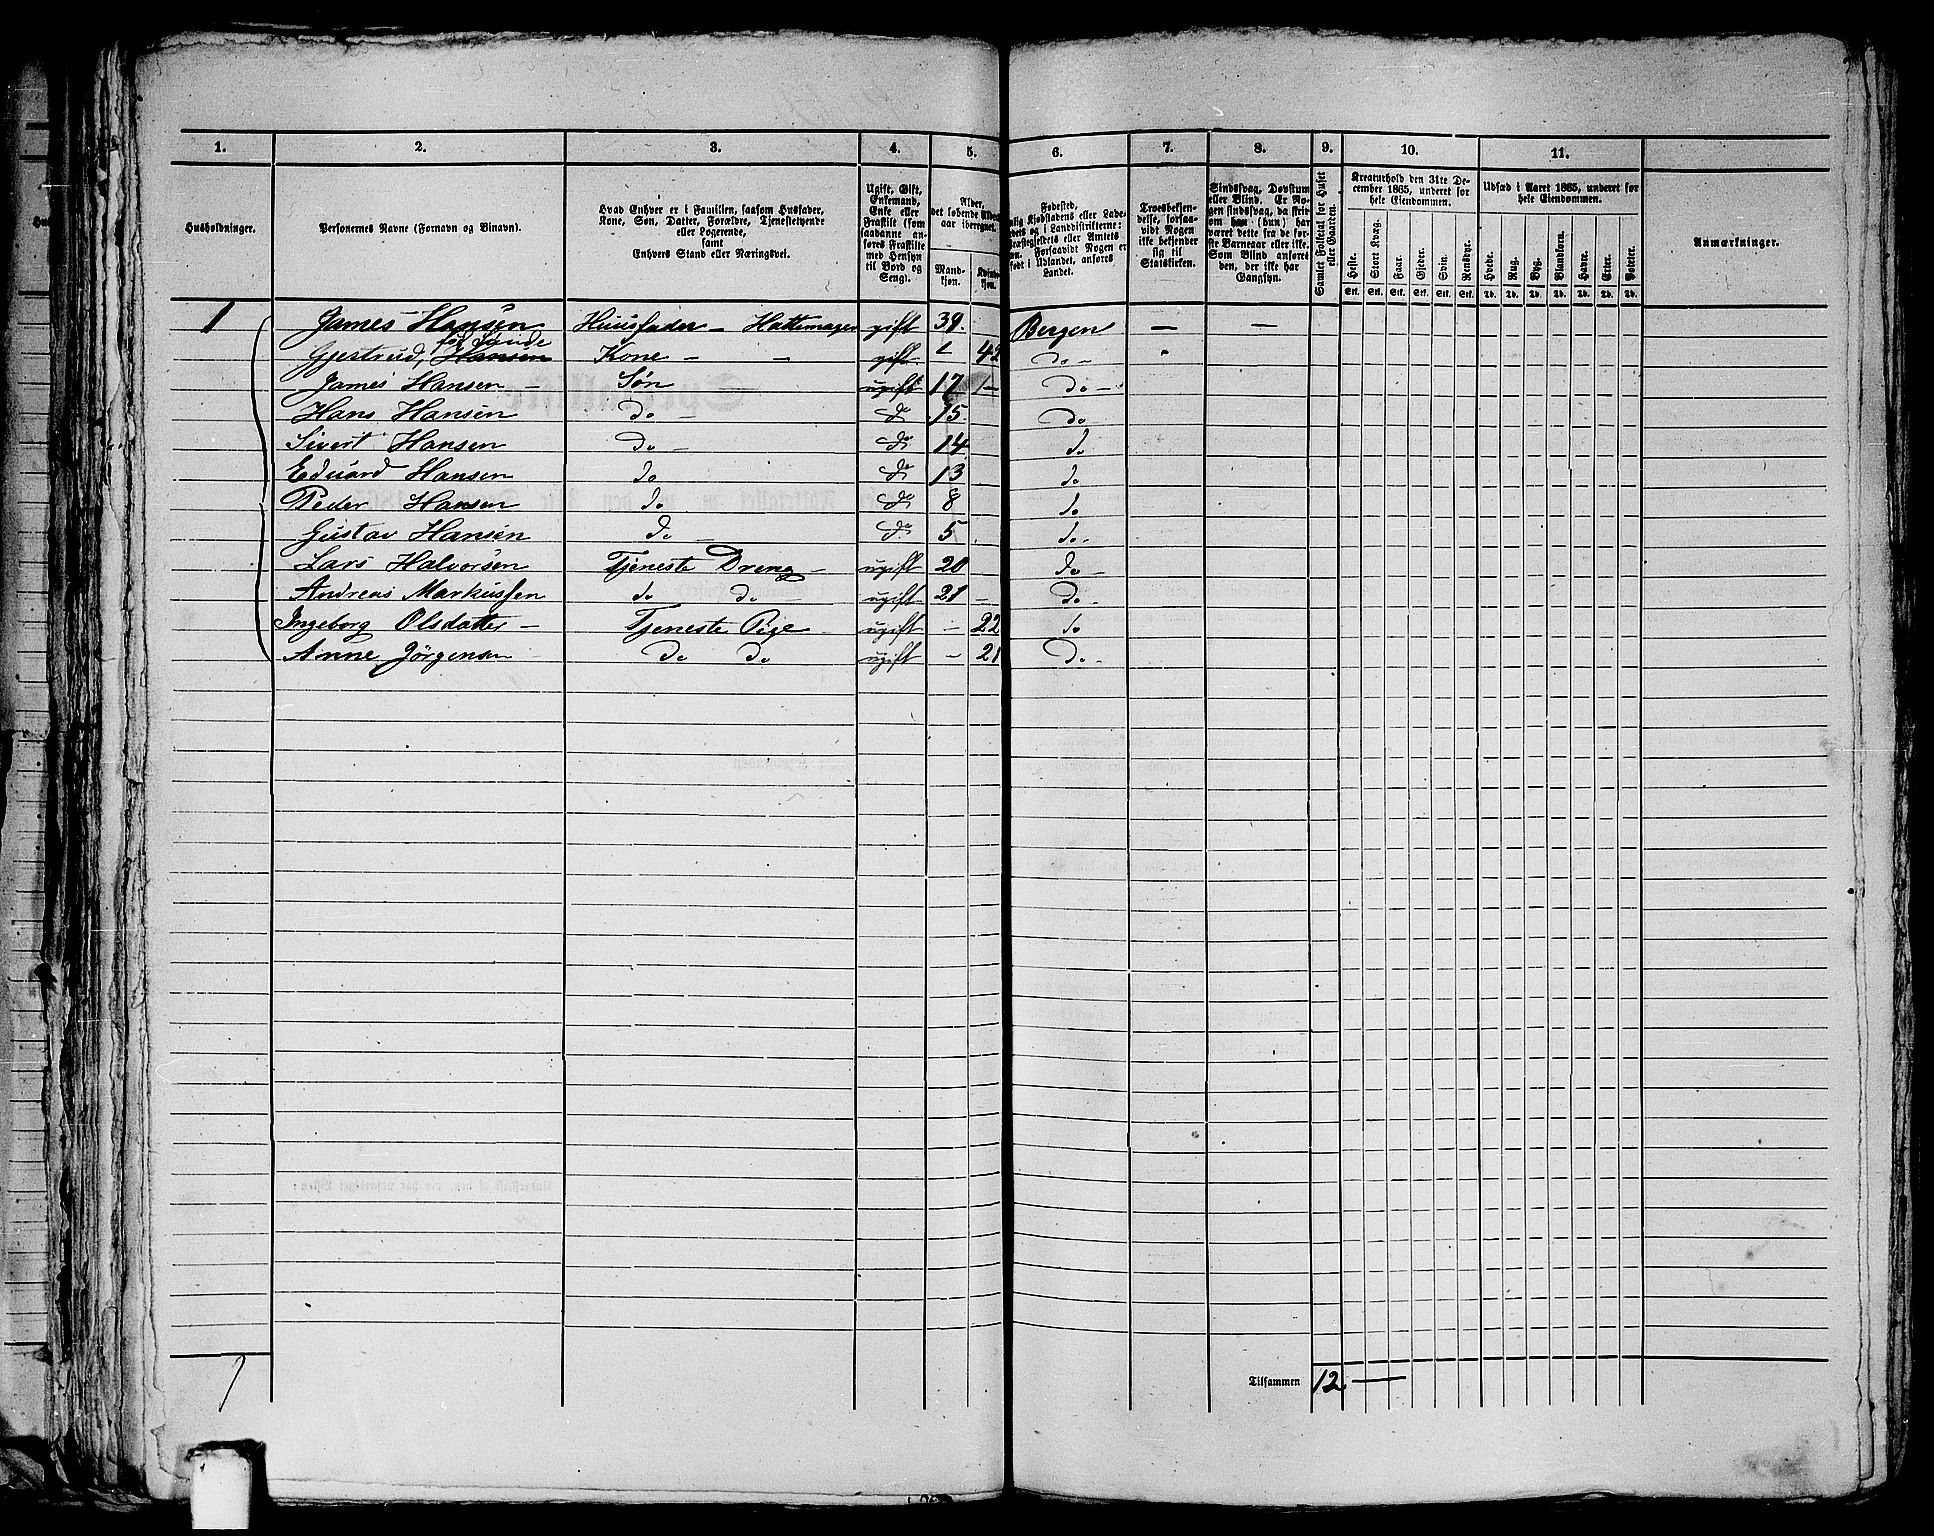 1. 2. 3. 4. 5. 6. 7. 8. 9. 10. 11.
Husholdninger.
Personernes Navne (Fornavn og Tilnavn).
Hvad Enhver er i Familien, saasom Husfader,
Kone, Søn, Datter, Forældre, Tjenestetyende
eller Logerende,
samt
Enhvers Stand eller Næringsvei.
Ugift, Gift,
Enkemand,
Enke eller
Fraskilt (som
saadanne an-
føres Fraskilte
med Hensyn
til Bord og
Seng).
Alder,
det løbende Alders-
aar iberegnet.
Mand-
kjøn.
Kvinde-
kjøn.
Fødested,
lig Kjøbstadens eller Lade-
debets og i Landdistrikterne:
ræstegjeldets eller Amtets
vn. Forsaavidt Nogen er
født i Udlandet, anføres
Landet.
Troesbekjen-
delse, forsaa-
vidt Nogen
ikke bekjender
sig til
Statskirken.
Sindssvag, Døvstum
eller Blind. Er No-
gen sindssvag, da skriv
om han (hun) har
været dette fra de før-
ste Barneaar eller ikke.
Som Blind anføres
den, der ikke har
Gangsyn.
Samlet Folketal for Huset
eller Gaarden.
Kreaturhold den 31te De-
cember 1865, underet for
hele Eiendommen.
Heste. Stort Kvæg. Faar. Gjeder. Svin. Rensdyr.
Stk. Stk. Stk. Stk. Stk. Stk.
Udsæd i Aaret 1865, underet for
hele Eiendommen.
Hvede. Rug. Byg. Blandkorn. Havre. Erter. Poteter.
Td. Td. Td. Td. Td. Td. Td.
Anmærkninger.
1 James Hansen Huusfader – Hattemager gift 39. Bergen — —
Gjestrud, Hansen Kone – – gift – 42 do –
James Hansen – Søn ugift 17 – do –
Hans Hansen do – do 15. do
Sivert Hansen do – do 14. do
Eduard Hansen do do 13 do
Peder Hansen do do 8 do
Gustav Hansen do do 5 do -
Lars Halvorsen Tjeneste Dreng – ugift 20 do -
Andreas Markussen do do ugift 21 – do -
Ingeborg Olsdatter – Tjeneste Pige – ugift – 22 do
Anne Jørgensen do do ugift – 21 do -
Tilsammen 12. —